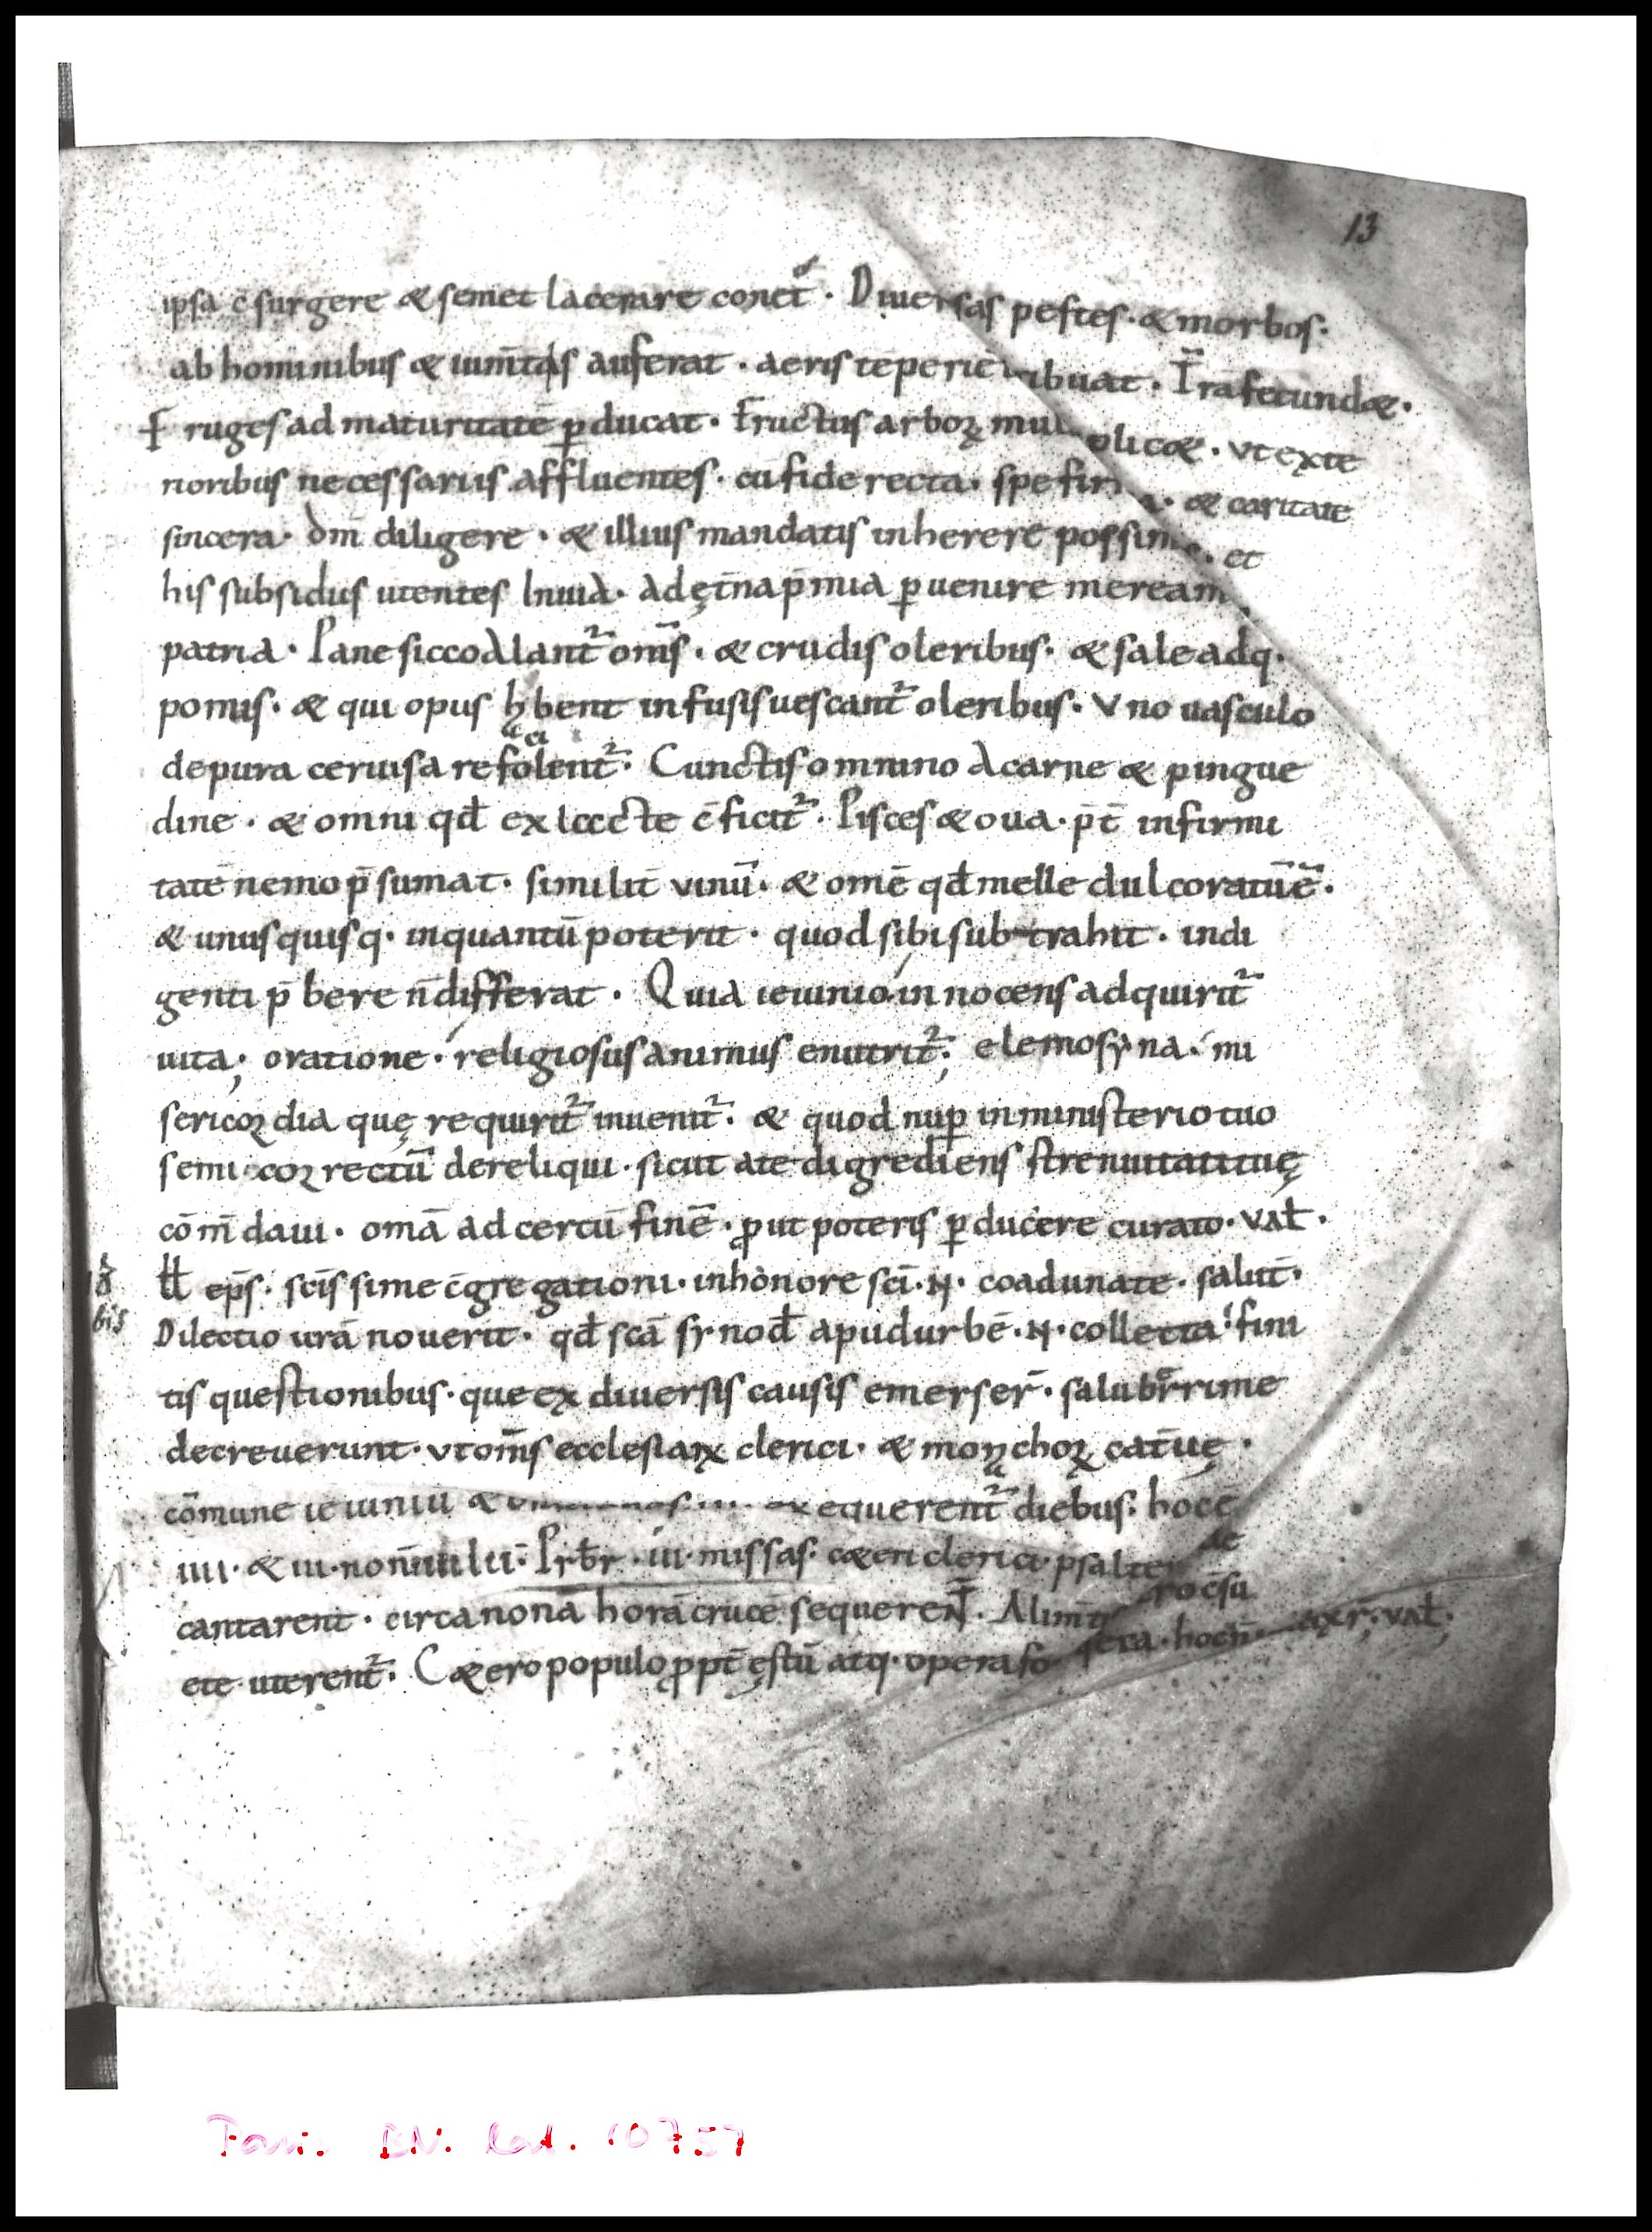 13
ipsa c̄surgere & semet lacerare conet̄. Diuersas pestes. & morbos.
ab hominibus & ium̄tis auferat. aeris tēperiē tribuat. T̄ra fecundæ.
Fruges ad maturitatē ꝑducat. Fructus arboꝝ mul plicæ. vt exte
rioribus necessariis affluentes. cū fide recta. spe firma. & caritate
sincera. dm̄ diligere. & illius mandatis inherere possim. et
his subsidiis utentes In uia. ad ęt̄na p̄mia ꝑuenire meream
patria. Pane sicco alant᷑ om̄s. & crudis oleribus. & sale adq.
pomis. & qui opus hab̄ent infusis uescant᷑ oleribus. Vno uasculo
de pura ceruisa refocilent᷑. Cunctis omnino a carne & pingue
dine. & omni qđ ex lacte c̄ficit᷑. Pisces & oua. p̄t̄ infirmi
tatē nemo p̄sumat. similit̄ vinū. & omē qđ melle dulcoratū ē.
& unusquisq. inquantū poterit. quod sibi subtrahit. indi
genti p̄bere n̄ differat. Quia ieiunio. innocens adquirit᷑
uita; oratione. religiosus animus enutrit᷑; elemosyna. mi
sericoꝝdia quę requirit᷑ inuenit᷑. & quod nuꝑ in ministerio tuo
semicoꝝrectū dereliqui. sicut a te digrediens strenuitati tuę
cōm̄daui. omā ad certū finē. ꝓut poteris ꝑducere curato. vał.
ꝉꝉ ep̄s. scīssime c̄gregationi. in honore sc̄i. N. coadunate. salut̄.
bis
Dilectio ur̄a nouerit. qđ sc̄a synođ apud urbē. N. collecta. fini
tis questionibus. que ex diuersis causis emerser̄. saluberrime
decreuerunt. vt om̄s ecclesiaꝝ clerici. & monachoꝝ cat̄uę.
cōmune ieiuniū & exequerent᷑ diebus. hoc ē
iiii. & iii. non̄ iulii. Prb̄r. iii. missas. cæteri clerici. psalte
de
cantarent. circa nonā horā crucē sequerent᷑. Alim̄ti rocēsu
ete uterent᷑. Cætero populo ꝓpt̄ ęstū atq. opera so eta. hoc n̄ vał.
Paris BN. Lat. 10757